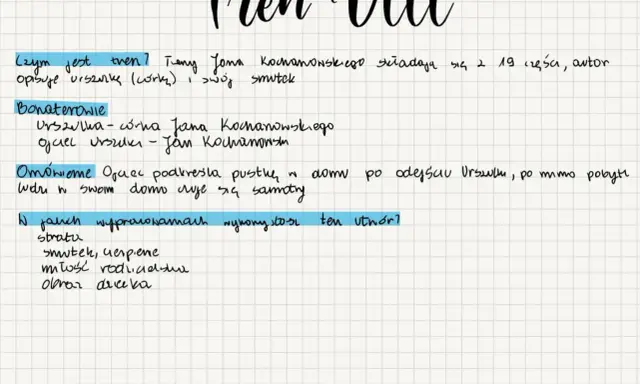 Tren VIII
Czym jest tren? Treny Jana Kochanowskiego składają się z 19 części, autor
opisuje Urszulkę (córkę) i swój smutek
Bohaterowie
Urszulka - córka Jana Kochanowskiego
ojciec Urszulki - Jan Kochanowski
Omówienie Ojciec podkreśla pustkę w domu po odejściu Urszulki, po mimo pobytu
ludzi w swoim domu czuje się samotny
W jakich wypracowaniach wykorzystasz ten utwór?
strata
smutek, cierpienie
miłość rodzicielska
obraz dziecka